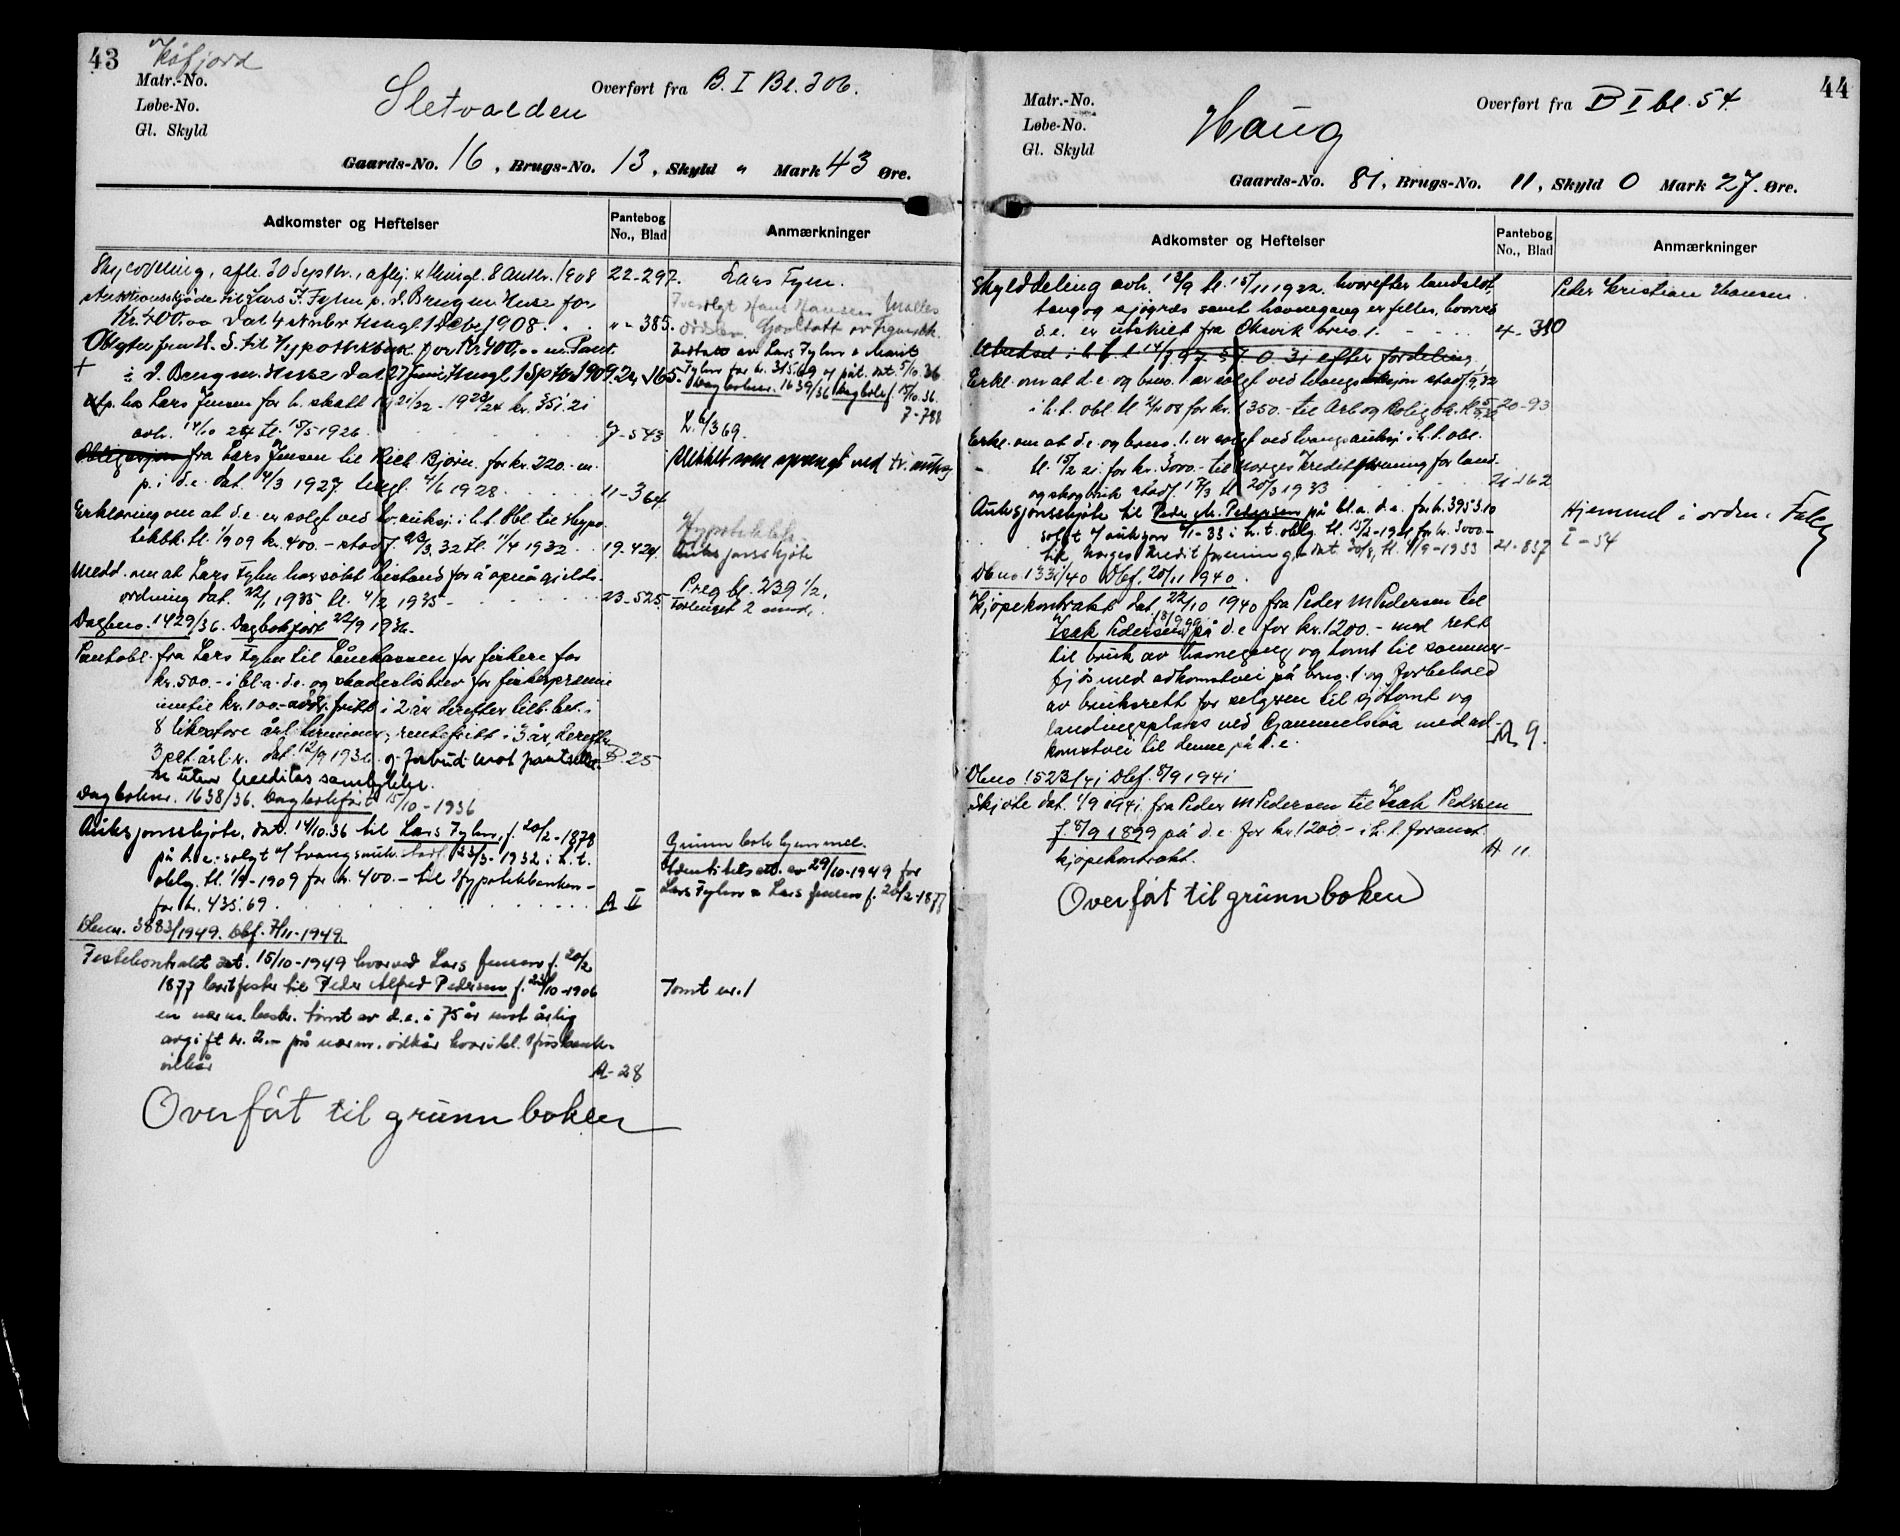 43
Kåfjord
Matr.-No.
Løbe-No.
Gl. Skyld
Sletvolden
Overført fra B. I Bl. 306.
Gaards-No. 16, Brugs-No. 13, Skyld „ Mark 43 Øre.
Adkomster og Heftelser
Pantebog No., Blad
Anmærkninger
Skylddeling, afh. 30 Septbr., afhj. & thingl. 8 Oktbr. 1908 22-297.
Lars Fylm.
Auktionsskjøde til Lars J. Fylm p. d. Brugm. Huse for
Kr. 400,00 Dat 4 Novbr thingl 1 Decbr 1908 „ - 385.
Obligation fra d. S. til Hypothekbank. for Kr 400,00 m. Pant
i d. Brug m. Huse Dat 27 Juni, thingl 1 Sptbr 1909. 24-165.
Utstedt av Lars Fylm & Marit
Fylm for kr. 315.69 og påt. dat. 5/10.36
Dagboknr. 1639/36 Dagbokf. 15/10.36.
7-788
Utp. hos Lars Jensen for h. skatt 1921/22 - 1923/24 kr. 351.21
avh. 14/10 24 tl. 15/5 1926. 7-543
L. 6/3 69.
Obligasjon fra Lars Jensen til Rich Bjørn. for kr. 220.- m.
p. i d.e. dat. 4/3 1927 tingl. 4/6 1928. 11-364
Slettet som sprengt ved tv. auksj
Erklæring om at d.e. er solgt ved tv. auksj. i h.t. Obl. til Hypo-
tekbk. tl. 1/9 09 kr. 400.- stadf. 23/3 32 tl. 11/4 1932 19-424.
Auksjonsskjøte
Medd. om at Lars Fylm har søkt bistand for å oppnå gjelds-
ordning dat. 22/1 1935 tl. 4/2 1935 - 23-525
P.reg bl. 239 1/2,
Forlenget 2 mnd.
Dagbno. 1429/36. Dagbokført 22/9 1936.
Pantobl. fra Lars Fylm til Lånekassen for fiskere for
kr. 500.- i bl.a. d.e. og skadesløsbrev for fiskerpremie
inntil kr. 100.- avdr. fritt i 2 år derefter tilb. bet. i
8 likestore årl. terminer, rentefritt i 3 år, derefter
3 pct. årl. r. dat. 12/9 1936. og forbud mot pantsettel-
se uten kreditors samtykke. B. 25
Dagboknr. 1638/36. Dagbokført 15/10-1936
Auksjonsskjøte, dat. 14/10.36 til Lars Fylm, f. 20/2-1878
på d.e. solgt v/ tvangsauk. stadf. 23/3-1932 i h.t.
oblg. tl. 1/9-1909 for kr. 400.- til Hypotekbanken -
for kr. 435.69 A II
Grunnbok hjemmel.
Identitetsatt. av 29/10-1949 for
Lars Fylm & Lars Jensen f. 20/2-1877
Dbnr. 3883/1949. Dbf. 7/11-1949.
Festekontrakt dat. 15/10-1949 hvorved Lars Jensen f. 20/2
1877 bortfester til Peder Alfred Pedersen f. 23/10-1906
Tomt nr. 1
en nærm. beskr. tomt av d.e. i 75 år mot årlig
avgift kr. 2.- på nærm. vilkår hvoribl. Husbank-
vilkår A-28
Overført til grunnboken

44
Matr.-No.
Løbe-No.
Gl. Skyld
Haug
Overført fra B I bl. 54
Gaards-No. 81, Brugs-No. 11, Skyld 0 Mark 27 Øre.
Adkomster og Heftelser
Pantebog No., Blad
Anmærkninger
Skylddeling avh. 13/9 tl. 15/11 1922. hvorefter landslot,
Peder Kristian Hansen.
tang og sjøgræs samt havnegang er felles, hvorved
d.e. er utskilt fra Oksvik brno. 1. 4-310
Erkl. om at d.e. og brno. 1 er solgt ved tvangsauksjon
i h.t. obl. tl. for kr. 1350.- til Arb. og Boligbk. 20-93
Erkl. om at d.e. og brno. 1. er solgt ved tvangsauksj. i h.t. obl.
tl. 15/2 21 for kr. 3000.- til Norges Kreditforening for land-
og skogbruk stadf. 17/3 tl. 20/3 1933 21-162
Auksjonsskjøte til Peder M. Pedersen på bl.a. d.e. for kr. 395 3.10
Hjemmel i orden.
solgt v/ auksjon i h.t. oblg. tl. 15/2-1921 for kr. 3000.-
til Norges Kreditforening, dat. 30/8, tl. 4/9-1933 21-837
I-54
Dbno 1331/40 Dbf. 20/11 1940.
Kjøpekontrakt dat. 22/10 1940 fra Peder M Pedersen til
Isak Pedersen f. 8/9 99 på d.e. for kr. 1200.- med rett
til bruk av havnegang og tomt til sommer-
fjøs med adkomstvei på brno. 1 og forbehold
av bruksrett for selgeren til sjøtomt og
landingsplass ved Gammelsjåa med ad-
komstvei til denne på d.e. A 9.
Dbno 1523/41 Dbf. 8/9 1941
Skjøte dat. 1/9 1941. fra Peder M Pedersen til Isak Pedersen
f. 8/9 1899 på d.e. for kr. 1200.- i h.t. foranst.
kjøpekontrakt. A 11
Overført til grunnboken